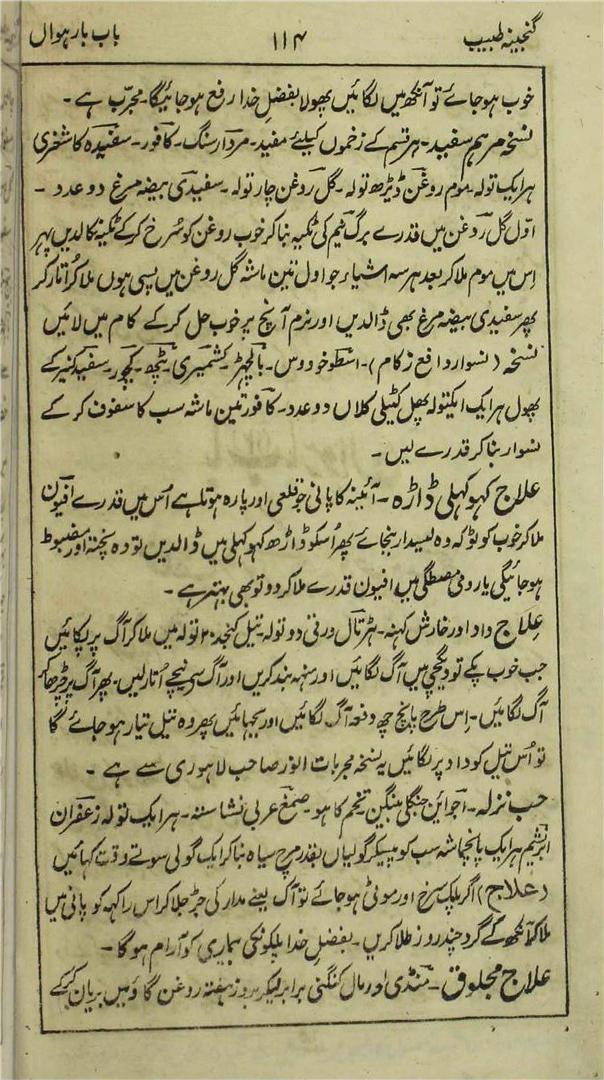 باب بارہواں ۱۱۴ گنجینہ طبیب
خوب ہوجائے تو آنکھ میں لگائیں پھولا بفضل خدا رفع ہوجائیگا۔ مجرب ہے۔
نسخہ مرہم سفید۔ ہر قسم کے زخموں کیلئے مفید۔ مردار سنگ۔ کافور۔ سفیدہ کاشغری
ہر ایک تولہ۔ موم روغن ڈیڑھ تولہ۔ گل روغن چار تولہ۔ سفیدی بیضہ مرغ دو عدد۔
اول گل روغن میں قدرے برگ نیم کی ٹکیہ بنا کر خوب روغن کو سرخ کر کے ٹکیہ نکالدیں پھر
اس میں موم ملا کر بعد ہر سہ اشیاء جو اول تین ماشہ گل روغن میں پسی ہوں ملا کر اتار کر
پھر سفیدی بیضہ مرغ بھی ڈالدیں اور نرم آنچ پر خوب حل کر کے کام میں لائیں
نسخہ (نسوار دافع زکام)۔ اسطوخودوس۔ بالچھڑ۔ کشمیری۔ پٹھ۔ کچور۔ سفید کنیر کے
پھول ہر ایک ایکتولہ پھل کٹیلی کلاں دو عدد۔ کافور تین ماشہ سب کا سفوف کر کے
نسوار بنا کر قدرے لیں۔
علاج کہوکہلی ڈاڑہ۔ آئینہ کا پانی جو قلعی اور پارہ ہوتا ہے اس میں قدرے افیون
ملا کر خوب کوٹو کہ وہ لیسدار بنجائے پھر اسکو ڈاڑھ کہوکہلی میں ڈالدیں تو وہ پختہ اور مضبوط
ہوجائیگی یا رومی مصطگی میں افیون قدرے ملا کر دو تو بھی بہتر ہے۔
علاج داد اور خارش کہنہ۔ ہڑتال ورقی دو تولہ تیل کنجد ۲۰ تولہ میں ملا کر آگ پر پکائیں
جب خوب پکے تو دیگچی میں آگ لگائیں اور منہ بند کریں اور آگ سے نیچے اتار لیں۔ پھر آگ پر چڑھا کر
آگ لگائیں۔ اس طرح پانچ چھ دفعہ آگ لگائیں اور بجہائیں پھر وہ تیل تیار ہوجائے گا
تو اس تیل کو داد پر لگائیں یہ نسخہ مجربات انور صاحب لاہوری سے ہے۔
حب نزلہ۔ اجوائن جنگلی بنگین تخم کاہو۔ صمغ عربی نشاستہ۔ ہر ایک تولہ زعفران
ابریشم ہر ایک پانچماشہ سب کو پیسکر گولیاں بقدر مرچ سیاہ بنا کر ایک گولی سوتے وقت کہائیں
(علاج) اگر پلک سرخ اور موٹی ہوجائے تو آگ یعنے مدار کی جڑ جلا کر اس راکہہ کو پانی میں
ملا کر آنکھ کے گرد چند روز طلا کریں۔ بفضل خدا پلکونکی بیماری کو آرام ہوگا۔
علاج مجلوق۔ منڈی اور مال کنگنی برابر لیکر روز ہفتہ روغن گاؤ میں بریاں کر کے